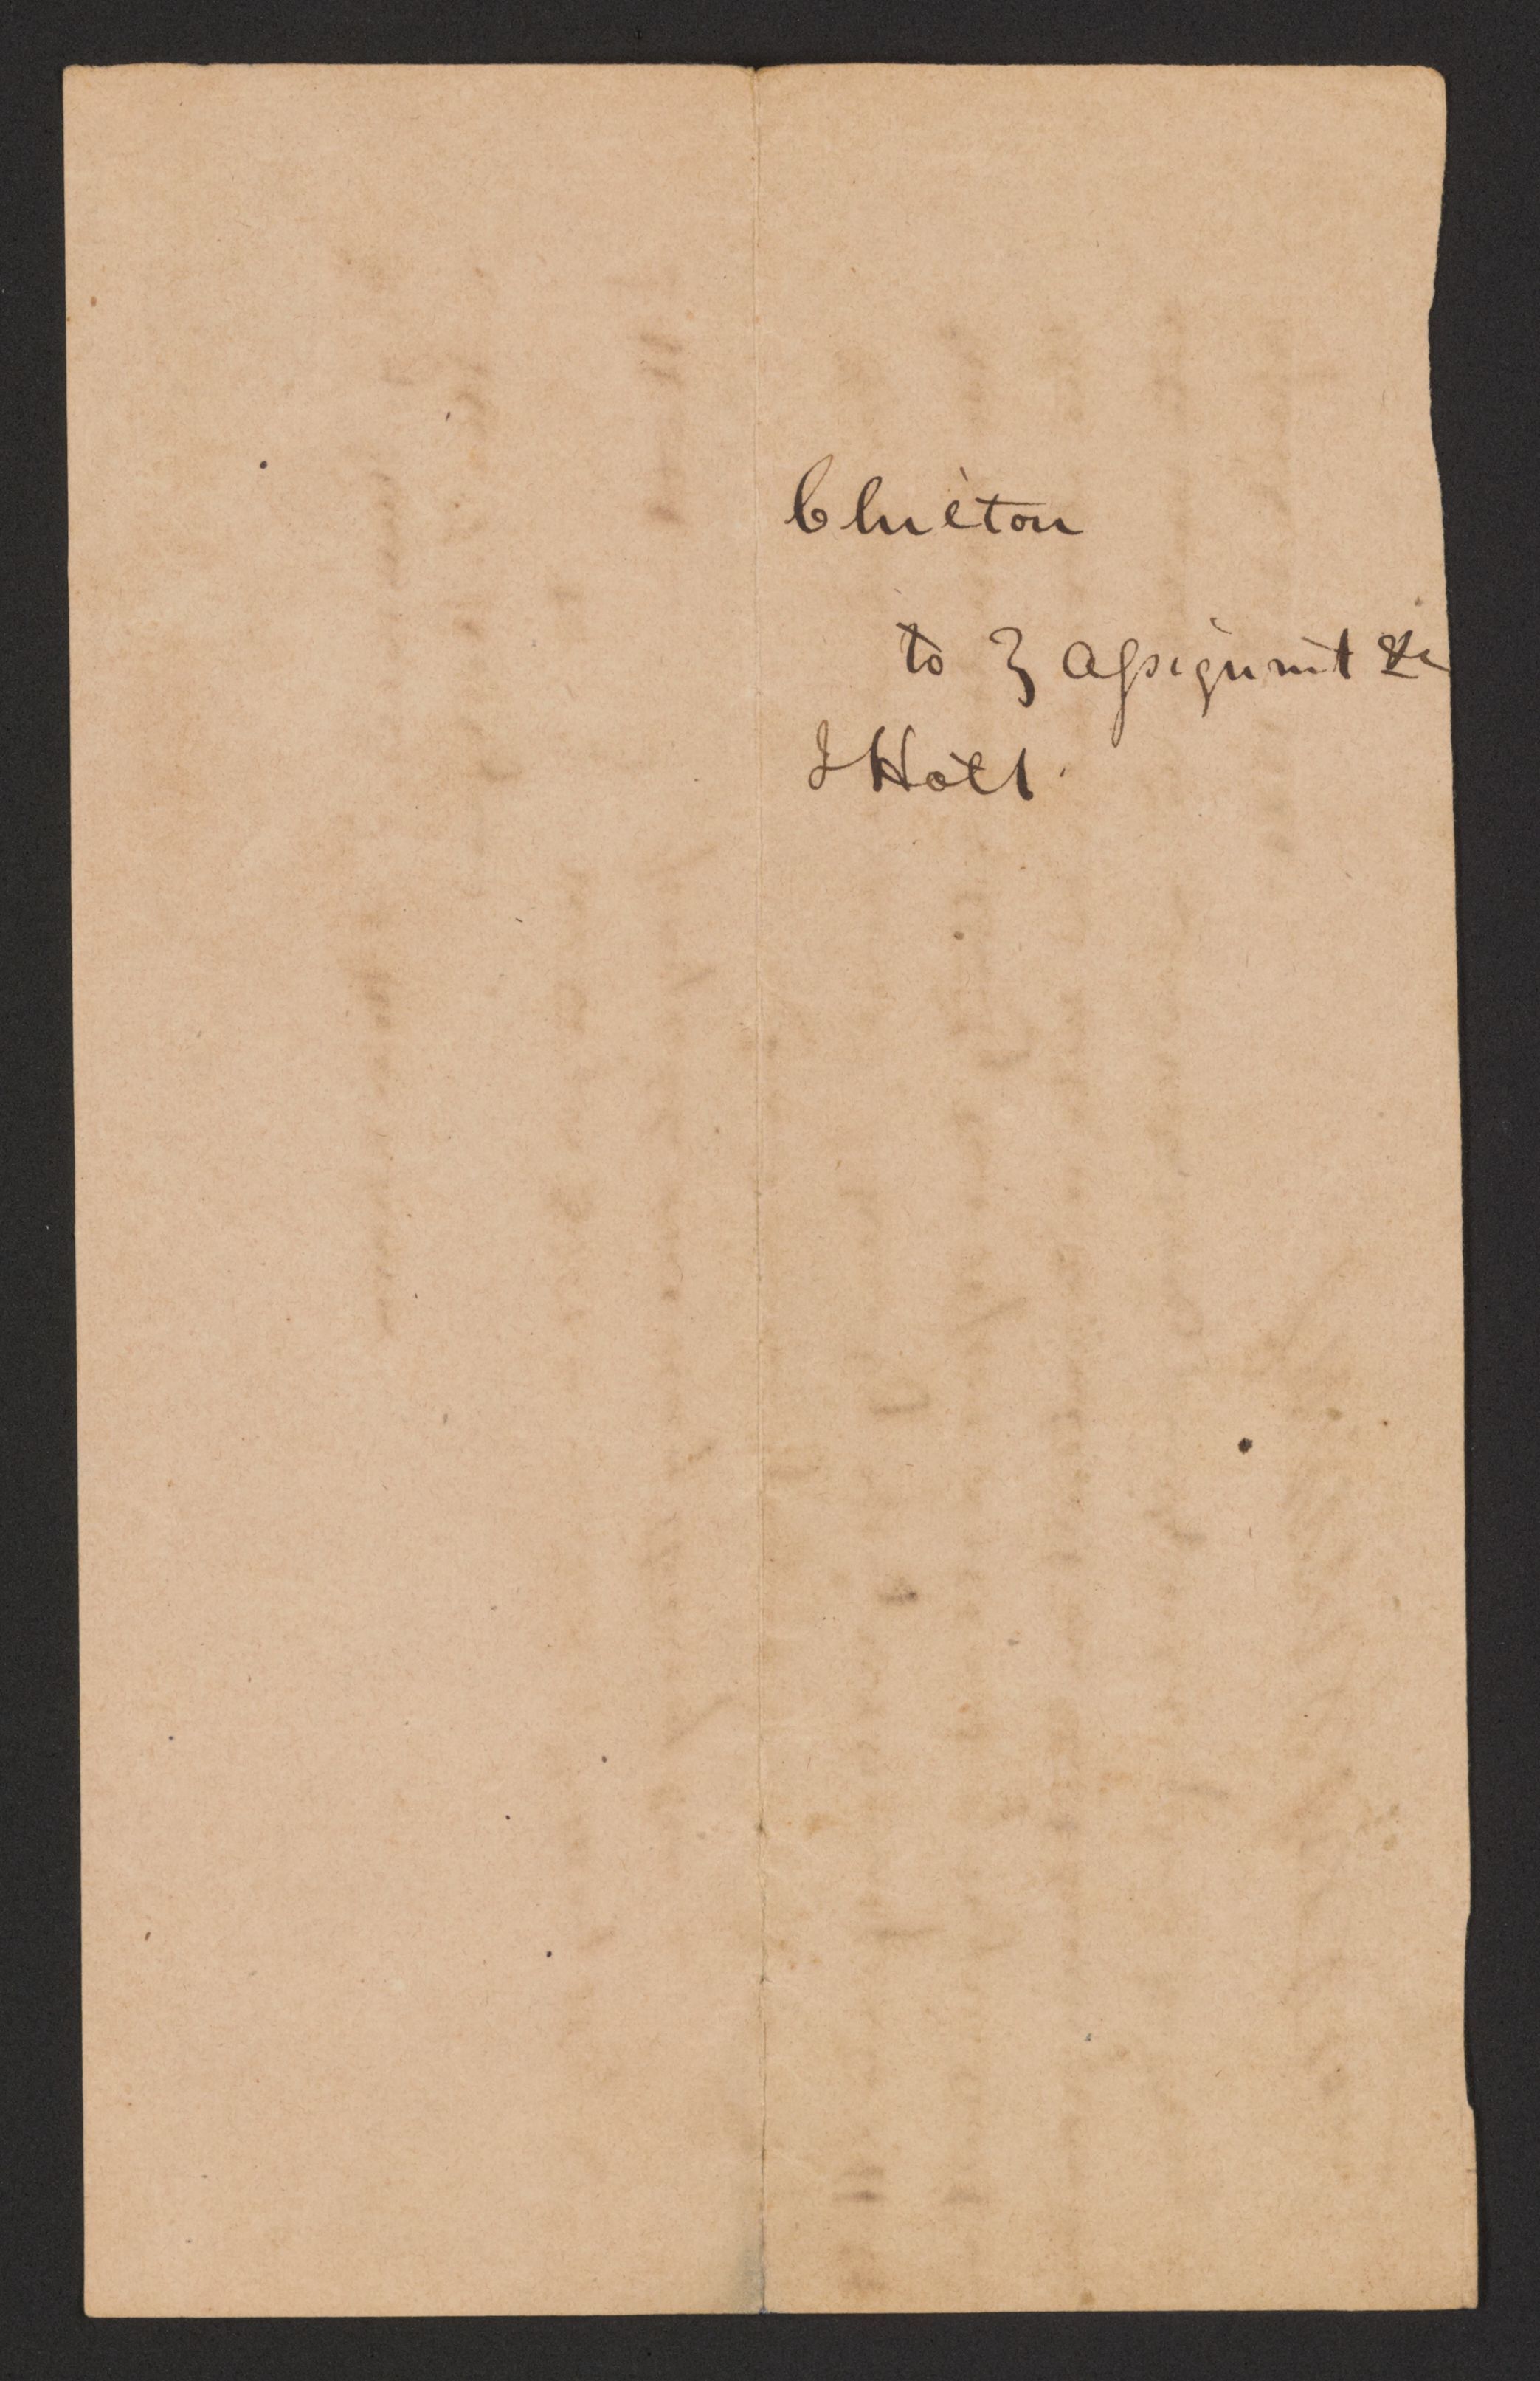 Clinton
to } Assignmt &c
J Holt